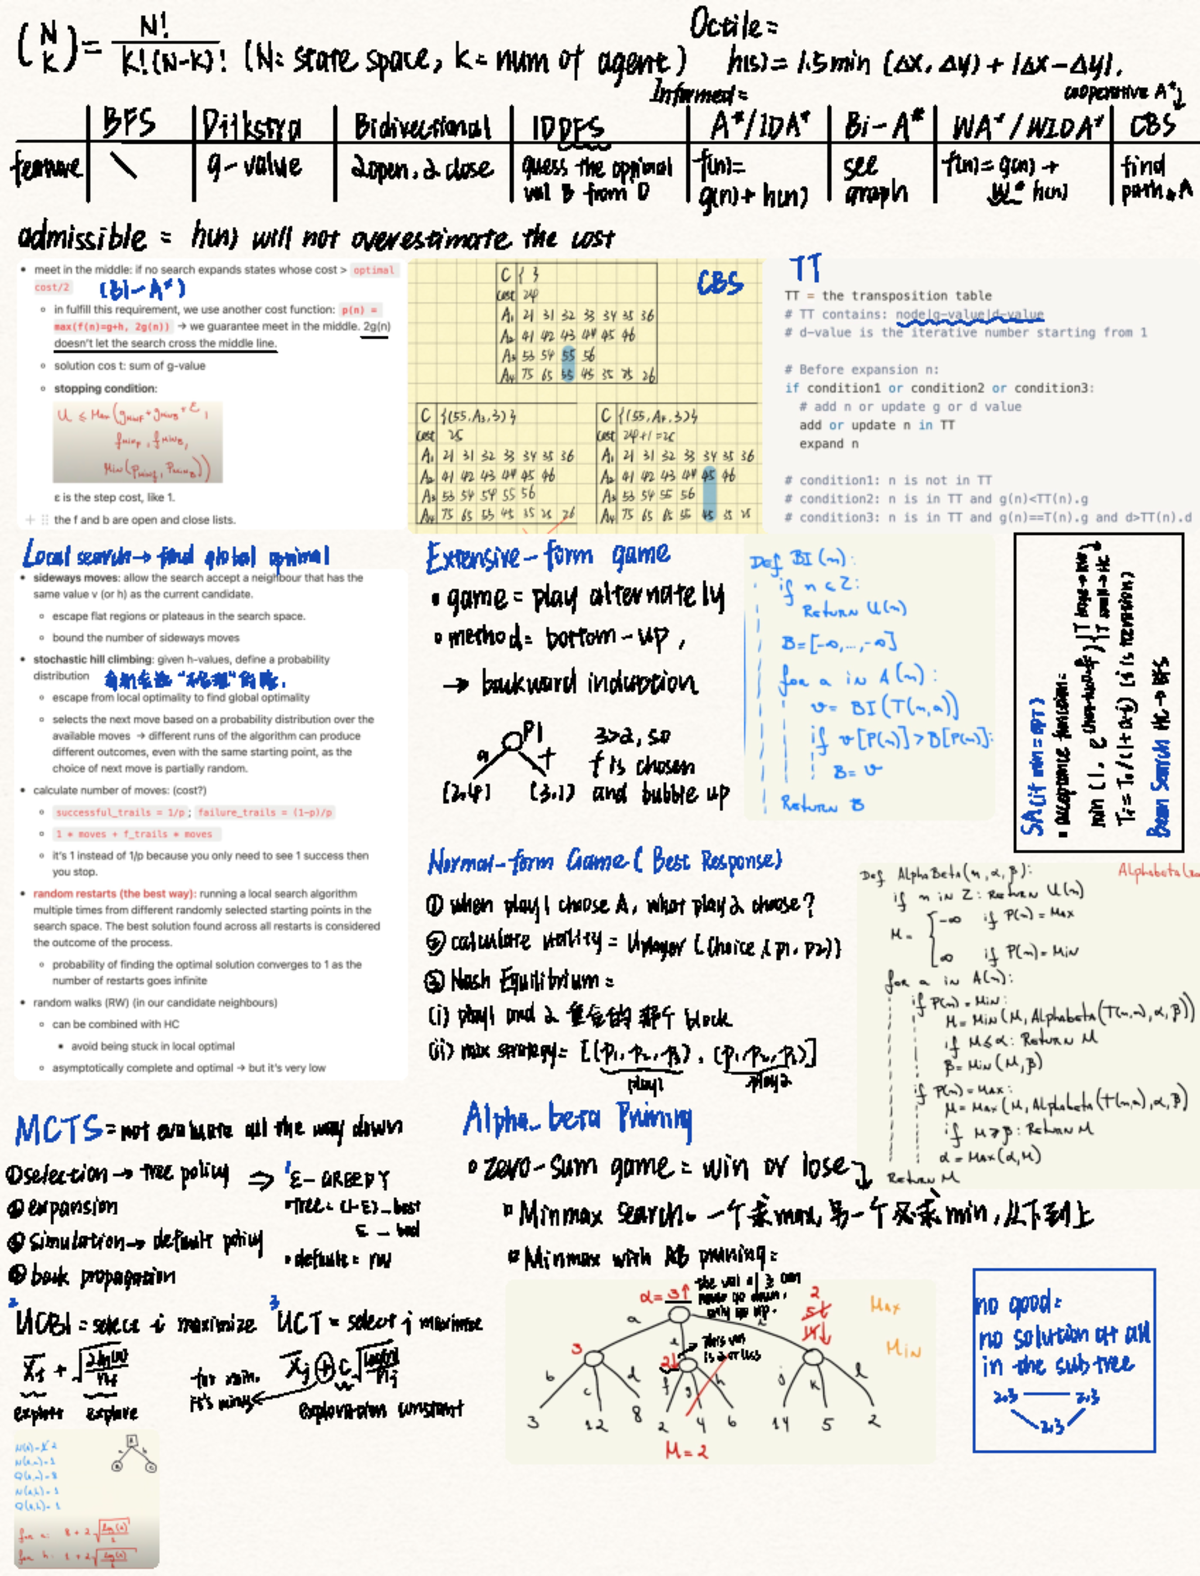 (N K) = N! / K!(N-K)! (N= state space, k= num of agent)
Octile=
h(s)= 1.5min (Δx, Δy) + |Δx-Δy|.
Informed=
cooperative A*
BFS Dijkstra Bidirectional IDDFS A*/IDA* Bi-A* WA*/WIDA* CBS
feature \ g-value 2open, 2 close guess the optimal val B from 0 f(n)= g(n)+h(n) see graph f(n)=g(n)+ W* h(n) find path A
admissible = h(n) will not overestimate the cost
meet in the middle: if no search expands states whose cost > optimal
cost/2
(BI-A*)
in fulfill this requirement, we use another cost function: p(n) =
max(f(n)=g+h, 2g(n)) → we guarantee meet in the middle. 2g(n)
doesn't let the search cross the middle line.
solution cos t: sum of g-value
stopping condition:
U ≤ Max(gminF+gminB+ε,
fminF, fminB,
Min(pminF, pminB))
ε is the step cost, like 1.
the f and b are open and close lists.
CBS
C { }
cost 24
A1 21 31 32 33 34 35 36
A2 41 42 43 44 45 46
A3 53 54 55 56
A4 75 65 55 45 35 25 26
C {(55,A3,3)}
cost 25
A1 21 31 32 33 34 35 36
A2 41 42 43 44 45 46
A3 53 54 54 55 56
A4 75 65 55 45 35 25 26
C {(55,A4,3)}
cost 24+1=25
A1 21 31 32 33 34 35 36
A2 41 42 43 44 45 46
A3 53 54 55 56
A4 75 65 65 55 45 35 25
TT
TT = the transposition table
# TT contains: node|g-value|d-value
# d-value is the iterative number starting from 1
# Before expansion n:
if condition1 or condition2 or condition3:
# add n or update g or d value
add or update n in TT
expand n
# condition1: n is not in TT
# condition2: n is in TT and g(n)<TT(n).g
# condition3: n is in TT and g(n)==T(n).g and d>TT(n).d
Local search→ find global optimal
sideways moves: allow the search accept a neighbour that has the
same value v (or h) as the current candidate.
escape flat regions or plateaus in the search space.
bound the number of sideways moves
stochastic hill climbing: given h-values, define a probability
distribution
escape from local optimality to find global optimality
selects the next move based on a probability distribution over the
available moves → different runs of the algorithm can produce
different outcomes, even with the same starting point, as the
choice of next move is partially random.
calculate number of moves: (cost?)
successful_trails = 1/p ; failure_trails = (1-p)/p
1 * moves + f_trails * moves
it's 1 instead of 1/p because you only need to see 1 success then
you stop.
random restarts (the best way): running a local search algorithm
multiple times from different randomly selected starting points in the
search space. The best solution found across all restarts is considered
the outcome of the process.
probability of finding the optimal solution converges to 1 as the
number of restarts goes infinite
random walks (RW) (in our candidate neighbours)
can be combined with HC
avoid being stuck in local optimal
asymptotically complete and optimal → but it's very low
Extensive-form game
game = play alternately
method= bottom-up,
→ backward induction
P1
a f
(2,4) (3,1)
3>2, so
f is chosen
and bubble up
Def BI(n):
if n ∈ Z:
Return U(n)
B=[-∞,...,-∞]
for a in A(n):
v= BI(T(n,a))
if v[P(n)]>B[P(n)]:
B= v
Return B
SA (if min=opt)
acceptance function=
Ti= To/(1+a·i) (i is iteration)
Beam Search HC→BFS
Normal-form Game (Best Response)
① when play1 choose A, what play2 choose?
② calculate utility= Uplayer (choice (p1, p2))
③ Nash Equilibrium=
(i) play1 and 2 重合的那个 block
(ii) mix strategy= [(p1,p2,p3), (p1,p2,p3)]
play1 play2
Alphabeta
Def AlphaBeta(n,α,β):
if n in Z: Return U(n)
M= { -∞ if P(n)=Max
∞ if P(n)=Min
for a in A(n):
if P(n)=Min:
M=Min(M,Alphabeta(T(n,a),α,β))
if M≤α: Return M
β=Min(M,β)
if P(n)=Max:
M=Max(M,Alphabeta(T(n,a),α,β)
if M≥β: Return M
α=Max(α,M)
Return M
MCTS=not evaluate all the way down
①selection→ tree policy ⇒
②expansion
③simulation→ default policy
④back propagation
1 ε-GREEDY
Tree= (1-ε)_best
ε _ bad
default= RW
2 UCB1=select i maximize
exploit explore
3 UCT=select j maximize
for min,
it's minus
exploration constant
Alpha_beta Pruning
zero-sum game = win or lose
Minmax search. 一个求max,另一个又求min,从下到上
Minmax with AB pruning=
α=3↑
the val of 3 can
never go down,
only go up.
This val
is 2 or less
Max
Min
a
3 2↓ 2 5↓ 14↓
b c d f g h j k l
3 12 8 2 4 6 14 5 2
M=2
no good=
no solution at all
in the subtree
2,3 2,3
2,3
N(a,a)=1
Q(a,a)=8
N(a,b)=1
Q(a,b)=1
A
B C
for a: 8+2√
for b: 1+2√